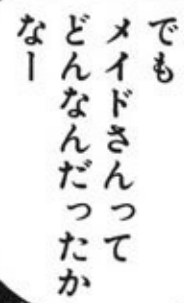 でも
メイドさんって
どんなんだったか
なー